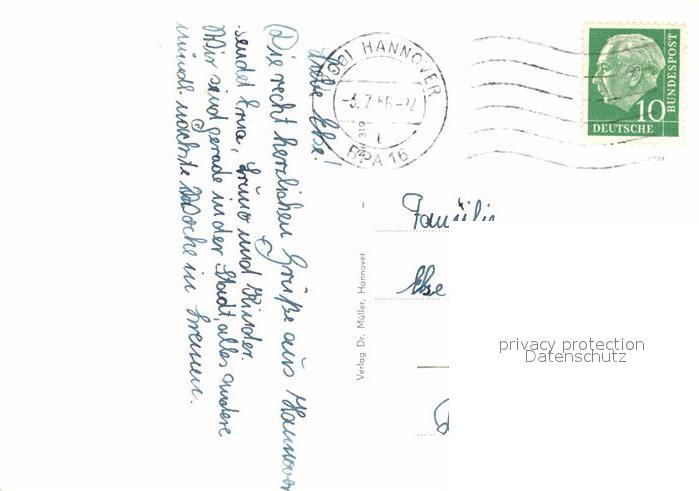 Liebe Ebe!
Die recht herzlichen Grüße aus Hannover
sendet Erna, Bruno und Kinder.
Wir sind gerade in der Stadt, alles andere
münde nächste Woche in Bremen.
HANNOVER
-3.7.56-12
BPA 16
10
DEUTSCHE
BUNDESPOST
Familie
Ebe
Verlag Dr. Müller, Hannover
privacy protection
Datenschutz